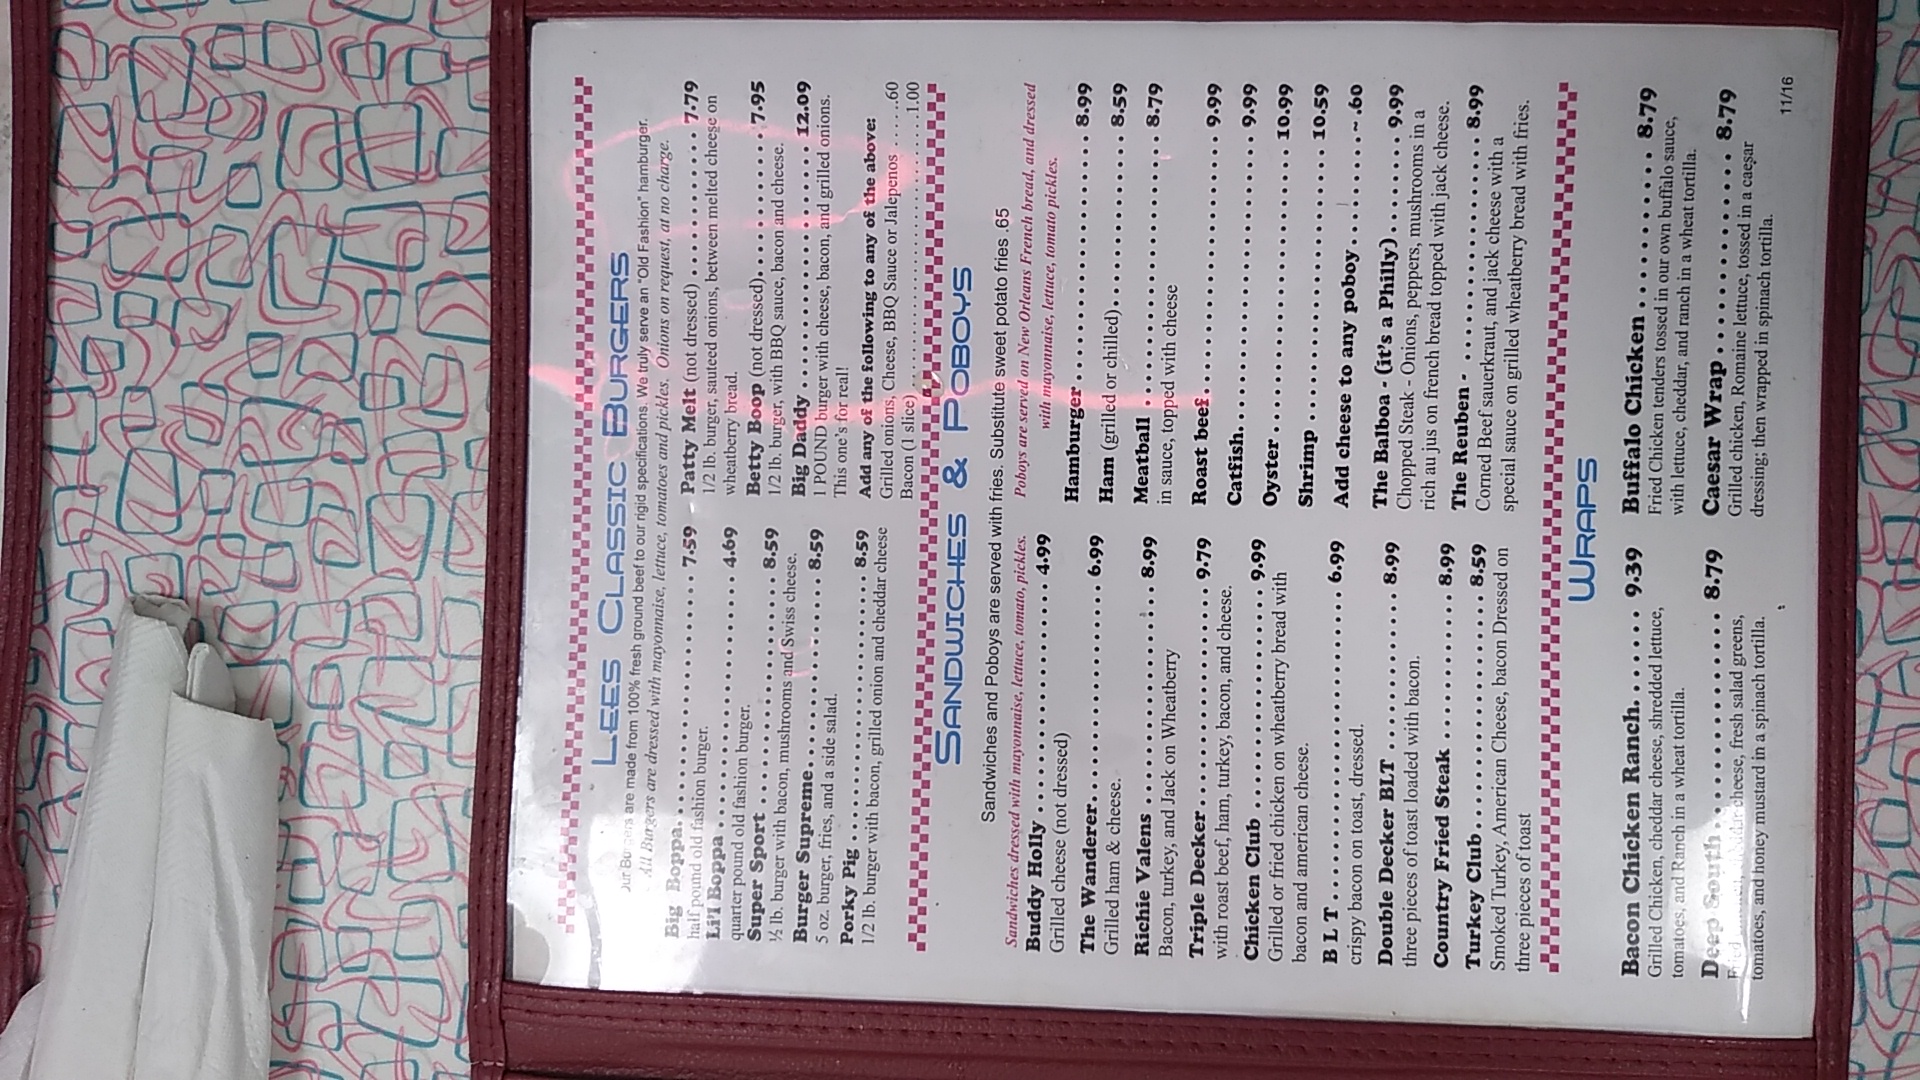 LEES CLASSIC BURGERS
Our Burgers are made from 100% fresh ground beef to our rigid specifications. We truly serve an "Old Fashion" hamburger.
All Burgers are dressed with mayonnaise, lettuce, tomatoes and pickles. Onions on request, at no charge.
Big Boppa............................ 7.59
half pound old fashion burger.
Li'l Boppa ........................... 4.69
quarter pound old fashion burger.
Super Sport ........................ 8.59
½ lb. burger with bacon, mushrooms and Swiss cheese.
Burger Supreme.................... 8.59
5 oz. burger, fries, and a side salad.
Porky Pig ........................... 8.59
1/2 lb. burger with bacon, grilled onion and cheddar cheese
Patty Melt (not dressed) .............. 7.79
1/2 lb. burger, sauteed onions, between melted cheese on
wheatberry bread.
Betty Boop (not dressed)............... 7.95
1/2 lb. burger, with BBQ sauce, bacon and cheese.
Big Daddy ........................ 12.09
1 POUND burger with cheese, bacon, and grilled onions.
This one's for real!
Add any of the following to any of the above:
Grilled onions, Cheese, BBQ Sauce or Jalepenos ........60
Bacon (1 slice) ............................ 1.00
SANDWICHES & POBOYS
Sandwiches and Poboys are served with fries. Substitute sweet potato fries .65
Sandwiches dressed with mayonnaise, lettuce, tomato, pickles.
Buddy Holly ........................ 4.99
Grilled cheese (not dressed)
The Wanderer........................ 6.99
Grilled ham & cheese.
Richie Valens ....................... 8.99
Bacon, turkey, and Jack on Wheatberry
Triple Decker ....................... 9.79
with roast beef, ham, turkey, bacon, and cheese.
Chicken Club ....................... 9.99
Grilled or fried chicken on wheatberry bread with
bacon and american cheese.
B L T ............................... 6.99
crispy bacon on toast, dressed.
Double Decker BLT ................. 8.99
three pieces of toast loaded with bacon.
Country Fried Steak ................ 8.99
Turkey Club........................ 8.59
Smoked Turkey, American Cheese, bacon Dressed on
three pieces of toast
Poboys are served on New Orleans French bread, and dressed
with mayonnaise, lettuce, tomato pickles.
Hamburger ........................ 8.99
Ham (grilled or chilled)................. 8.59
Meatball .......................... 8.79
in sauce, topped with cheese
Roast beef......................... 9.99
Catfish............................ 9.99
Oyster ............................ 10.99
Shrimp ........................... 10.59
Add cheese to any poboy .......... ~ .60
The Balboa - (it's a Philly) ........... 9.99
Chopped Steak - Onions, peppers, mushrooms in a
rich au jus on french bread topped with jack cheese.
The Reuben - ..................... 8.99
Corned Beef sauerkraut, and jack cheese with a
special sauce on grilled wheatberry bread with fries.
WRAPS
Bacon Chicken Ranch............ 9.39
Grilled Chicken, cheddar cheese, shredded lettuce,
tomatoes, and Ranch in a wheat tortilla.
Deep South...................... 8.79
cheese, fresh salad greens,
tomatoes, and honey mustard in a spinach tortilla.
Buffalo Chicken ................. 8.79
Fried Chicken tenders tossed in our own buffalo sauce,
with lettuce, cheddar, and ranch in a wheat tortilla.
Caesar Wrap.................... 8.79
Grilled chicken, Romaine lettuce, tossed in a caesar
dressing; then wrapped in spinach tortilla.
11/16